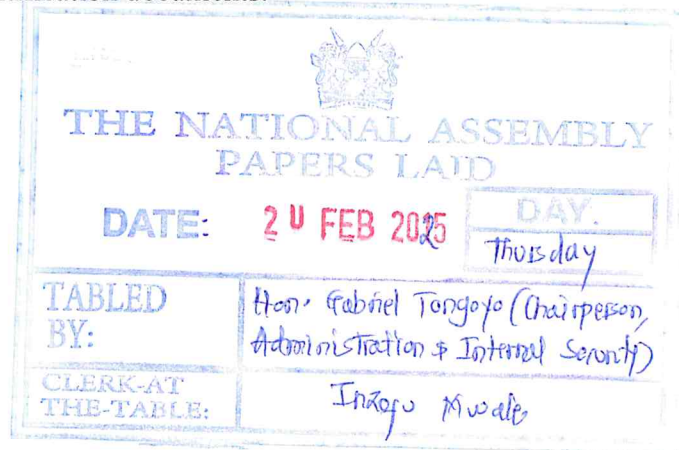 THE NATIONAL ASSEMBLY
PAPERS LAID
DATE: 20 FEB 2025
DAY.
Thursday
TABLED
BY:
Hon. Gabriel Tongoyo (Chairperson,
Administration & Internal Security)
CLERK-AT
THE-TABLE:
Inzofu Mwale